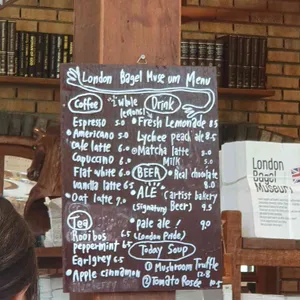 London Bagel Museum Menu
Coffee
Espresso 5.0
Americano 5.0
Cafe latte 6.0
Cappuccino 6.0
Flat white 6.0
vanilla latte 6.5
Oat latte 7.0
Tea
Rooibos
peppermint 6.5
Earl grey 6.5
Apple cinnamon
+whole lemons!
Drink
Fresh Lemonade 8.5
Lychee peach ale 8.5
Matcha latte
Milk 5.0
BEER
Real chocolate 8.0
ALE (artist bakery
(signature Beer) 9.5
pale ale! 9.0
(London Pride)
Today Soup
① Mushroom Truffle
12.8
② Tomato
London
Bagel
Museum